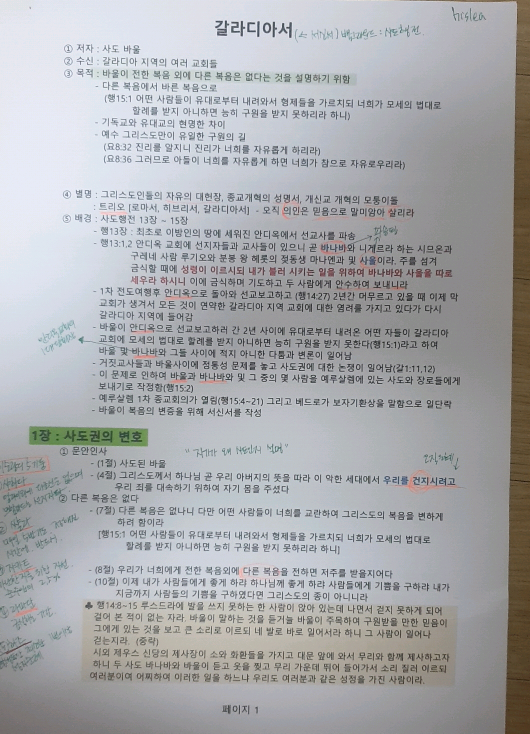 hcslea
갈라디아서
① 저자 : 사도 바울
② 수신 : 갈라디아 지역의 여러 교회들
③ 목적 : 바울이 전한 복음 외에 다른 복음은 없다는 것을 설명하기 위함
- 다른 복음에서 바른 복음으로
(행15:1 어떤 사람들이 유대로부터 내려와서 형제들을 가르치되 너희가 모세의 법대로
할례를 받지 아니하면 능히 구원을 받지 못하리라 하니)
- 기독교와 유대교의 현명한 차이
- 예수 그리스도만이 유일한 구원의 길
(요8:32 진리를 알지니 진리가 너희를 자유롭게 하리라)
(요8:36 그러므로 아들이 너희를 자유롭게 하면 너희가 참으로 자유로우리라)
④ 별명 : 그리스도인들의 자유의 대헌장, 종교개혁의 성명서, 개신교 개혁의 모퉁이돌
: 트리오 [로마서, 히브리서, 갈라디아서] - 오직 의인은 믿음으로 말미암아 살리라
⑤ 배경 : 사도행전 13장 ~ 15장
- 행13장 : 최초로 이방인의 땅에 세워진 안디옥에서 선교사를 파송
- 행13:1,2 안디옥 교회에 선지자들과 교사들이 있으니 곧 바나바와 니게르라 하는 시므온과
구레네 사람 루기오와 분봉 왕 헤롯의 젖동생 마나엔과 및 사울이라. 주를 섬겨
금식할 때에 성령이 이르시되 내가 불러 시키는 일을 위하여 바나바와 사울을 따로
세우라 하시니 이에 금식하며 기도하고 두 사람에게 안수하여 보내니라
- 1차 전도여행후 안디옥으로 돌아와 선교보고하고 (행14:27) 2년간 머무르고 있을 때 이제 막
교회가 생겨서 모든 것이 연약한 갈라디아 지역 교회에 대한 염려를 가지고 있다가 다시
갈라디아 지역에 들어감
- 바울이 안디옥으로 선교보고하러 간 2년 사이에 유대로부터 내려온 어떤 자들이 갈라디아
교회에 모세의 법대로 할례를 받지 아니하면 능히 구원을 받지 못한다(행15:1)라고 하여
바울 및 바나바와 그들 사이에 적지 아니한 다툼과 변론이 일어남
- 거짓교사들과 바울사이에 정통성 문제를 놓고 사도권에 대한 논쟁이 일어남(갈1:11,12)
- 이 문제로 인하여 바울과 바나바와 및 그 중의 몇 사람을 예루살렘에 있는 사도와 장로들에게
보내기로 작정함(행15:2)
- 예루살렘 1차 종교회의가 열림(행15:4~21) 그리고 베드로가 보자기환상을 말함으로 일단락
- 바울이 복음의 변증을 위해 서신서를 작성
1장 : 사도권의 변호
① 문안인사
- (1절) 사도된 바울
- (4절) 그리스도께서 하나님 곧 우리 아버지의 뜻을 따라 이 악한 세대에서 우리를 건지시려고
우리 죄를 대속하기 위하여 자기 몸을 주셨다
② 다른 복음은 없다
- (7절) 다른 복음은 없나니 다만 어떤 사람들이 너희를 교란하여 그리스도의 복음을 변하게
하려 함이라
[행15:1 어떤 사람들이 유대로부터 내려와서 형제들을 가르치되 너희가 모세의 법대로
할례를 받지 아니하면 능히 구원을 받지 못하리라 하니]
- (8절) 우리가 너희에게 전한 복음외에 다른 복음을 전하면 저주를 받을지어다
- (10절) 이제 내가 사람들에게 좋게 하랴 하나님께 좋게 하랴 사람들에게 기쁨을 구하랴 내가
지금까지 사람들의 기쁨을 구하였다면 그리스도의 종이 아니니라
♣ 행14:8~15 루스드라에 발을 쓰지 못하는 한 사람이 앉아 있는데 나면서 걷지 못하게 되어
걸어 본 적이 없는 자라. 바울이 말하는 것을 듣거늘 바울이 주목하여 구원받을 만한 믿음이
그에게 있는 것을 보고 큰 소리로 이르되 네 발로 바로 일어서라 하니 그 사람이 일어나
걷는지라. (중략)
시외 제우스 신당의 제사장이 소와 화환들을 가지고 대문 앞에 와서 무리와 함께 제사하고자
하니 두 사도 바나바와 바울이 듣고 옷을 찢고 무리 가운데 뛰어 들어가서 소리 질러 이르되
여러분이여 어찌하여 이러한 일을 하느냐 우리도 여러분과 같은 성정을 가진 사람이라.
페이지 1